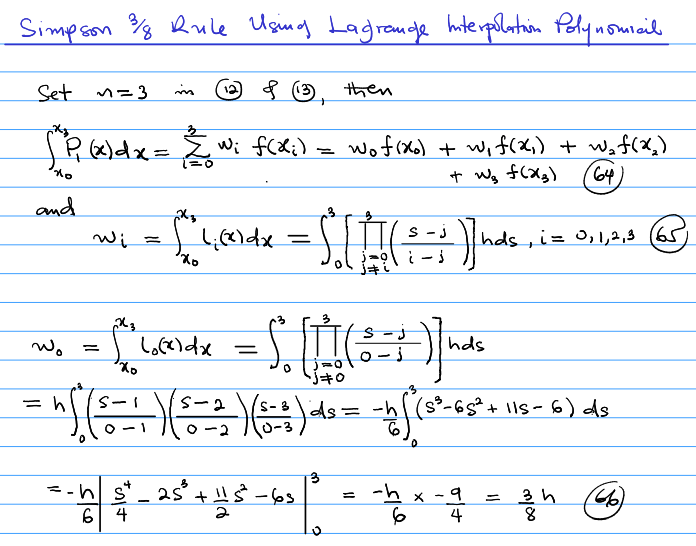 Simpson 3/8 Rule Using Lagrange Interpolation Polynomial
Set n=3 in (12) & (13), then
∫_{x₀}^{x₃} P₁(x)dx = Σ_{i=0}^{3} wᵢ f(xᵢ) = w₀f(x₀) + w₁f(x₁) + w₂f(x₂)
+ w₃ f(x₃) (64)
and
wᵢ = ∫_{x₀}^{x₃} lᵢ(x)dx = ∫_0^3 [∏_{j=0, j≠i}^{3} ((s-j)/(i-j))] hds, i = 0,1,2,3 (65)
w₀ = ∫_{x₀}^{x₃} l₀(x)dx = ∫_0^3 [∏_{j=0, j≠0}^{3} ((s-j)/(0-j))] hds
= h∫_0^3 ((s-1)/(0-1)) ((s-2)/(0-2)) ((s-3)/(0-3)) ds = -h/6 ∫_0^3 (s³-6s²+11s-6) ds
= -h/6 | s⁴/4 - 2s³ + 11/2 s² - 6s |_0^3 = -h/6 × -9/4 = 3/8 h (66)